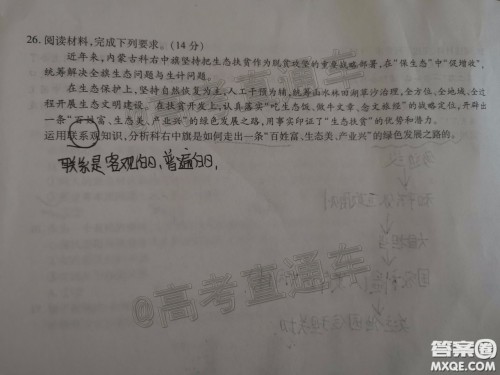 26. 阅读材料,完成下列要求。(14 分)
近年来,内蒙古科右中旗坚持把生态扶贫作为脱贫攻坚的重要战略部署,在"保生态"中"促增收",
统筹解决全旗生态问题与生计问题。
在生态保护上,坚持自然恢复为主,人工干预为辅,统筹山水林田湖草沙治理,全方位、全地域、全过
程开展生态文明建设。在扶贫开发上,认真落实"吃生态饭、做牛文章、念文旅经"的战略定位,开辟出
一条"百姓富、生态美、产业兴"的绿色发展之路,用事实印证了"生态扶贫"的优势和潜力。
运用联系观知识,分析科右中旗是如何走出一条"百姓富、生态美、产业兴"的绿色发展之路的。
联系是客观的、普遍的,
@高考直通车
答案圈
MXQE.COM